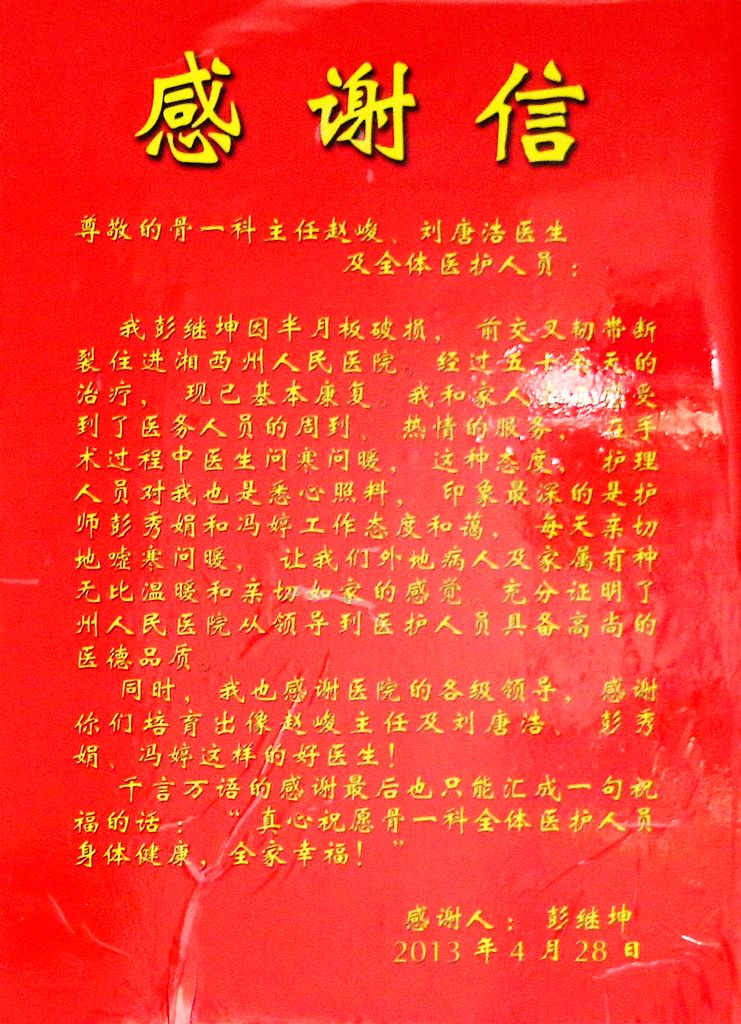 感谢信
尊敬的骨一科主任赵峻、刘唐浩医生
及全体医护人员：
我彭继坤因半月板破损，前交叉韧带断
裂住进湘西州人民医院。经过五十余天的
治疗，现已基本康复。我和家人受
到了医务人员的周到、热情的服务，在手
术过程中医生问寒问暖，这种态度、护理
人员对我也是悉心照料，印象最深的是护
师彭秀娟和冯婷工作态度和蔼，每天亲切
地嘘寒问暖，让我们外地病人及家属有种
无比温暖和亲切如家的感觉。充分证明了
州人民医院从领导到医护人员具备高尚的
医德品质。
同时，我也感谢医院的各级领导，感谢
你们培育出像赵峻主任及刘唐浩、彭秀
娟、冯婷这样的好医生！
千言万语的感谢最后也只能汇成一句祝
福的话：“真心祝愿骨一科全体医护人员
身体健康，全家幸福！”
感谢人：彭继坤
2013年4月28日